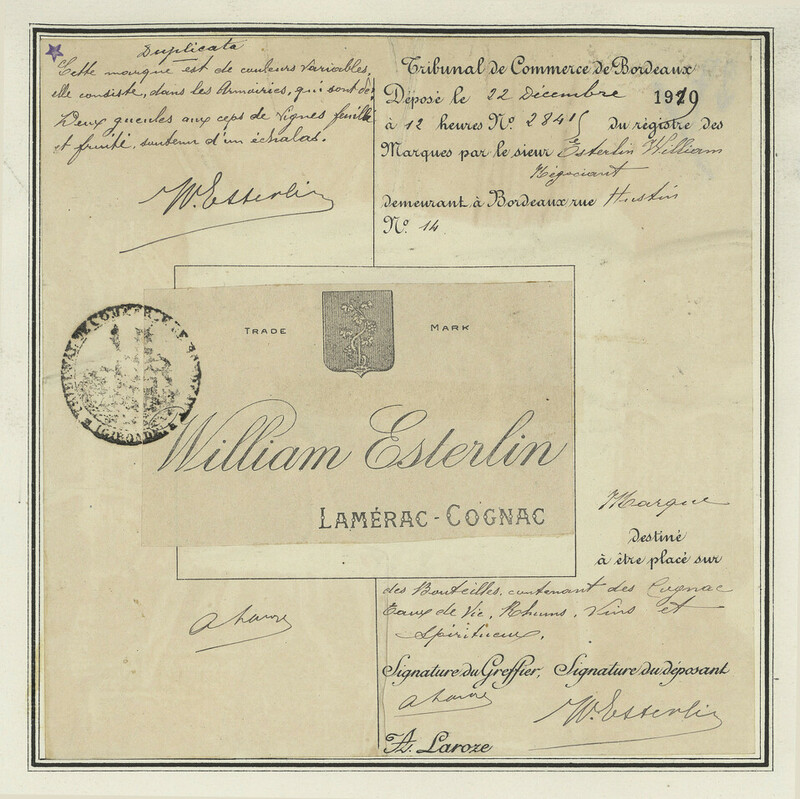 Duplicata
Cette marque est de couleurs variables,
elle consiste, dans les Armoiries, qui sont de
Deux gueules aux ceps de vignes feuillé
et fruité, soutenu d'un échalas.
W. Esterlin
Tribunal de Commerce de Bordeaux
Déposé le 22 Décembre 1919
à 12 heures N° 28415 du régistre des
Marques par le sieur Esterlin William
Négociant
demeurant à Bordeaux rue Hustin
N° 14
TRADE MARK
William Esterlin
LAMÉRAC-COGNAC
TRIBUNAL DE COMMERCE DE BORDEAUX
(GIRONDE)
Marque
destiné
à être placé sur
des Bouteilles, contenant des Cognac
Eaux de Vie, Rhums, Vins et
Spiritueux.
Signature du Greffier, Signature du déposant
W. Esterlin
A. Laroze